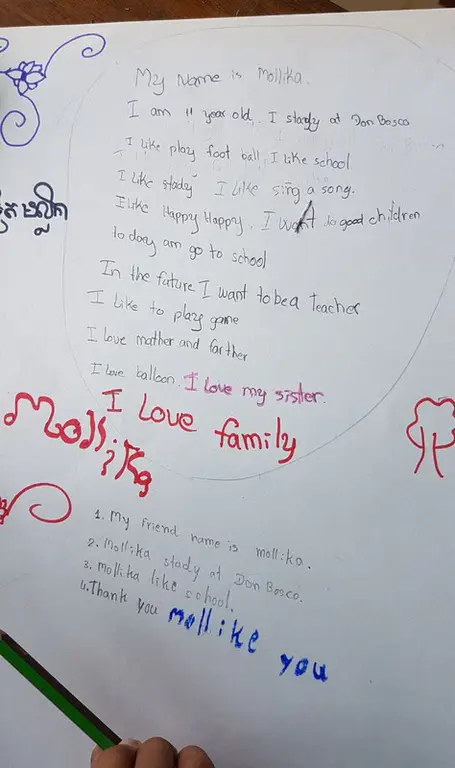 My Name is Mollika.
I am 11 year old. I stady at Don Bosco
I like play foot ball I like school
I like stady I like sing a song.
I like Happy Happy. I want to good children
to day am go to school
In the future I want to be a Teacher
I Like to play game
I love mather and farther
I love balloon. I love my sister.
I Love family
Mollika
មល្លិកា
1. My Friend name is mollika.
2. Mollika stady at Don Bosco.
3. Mollika like school.
4. Thank you mollike you